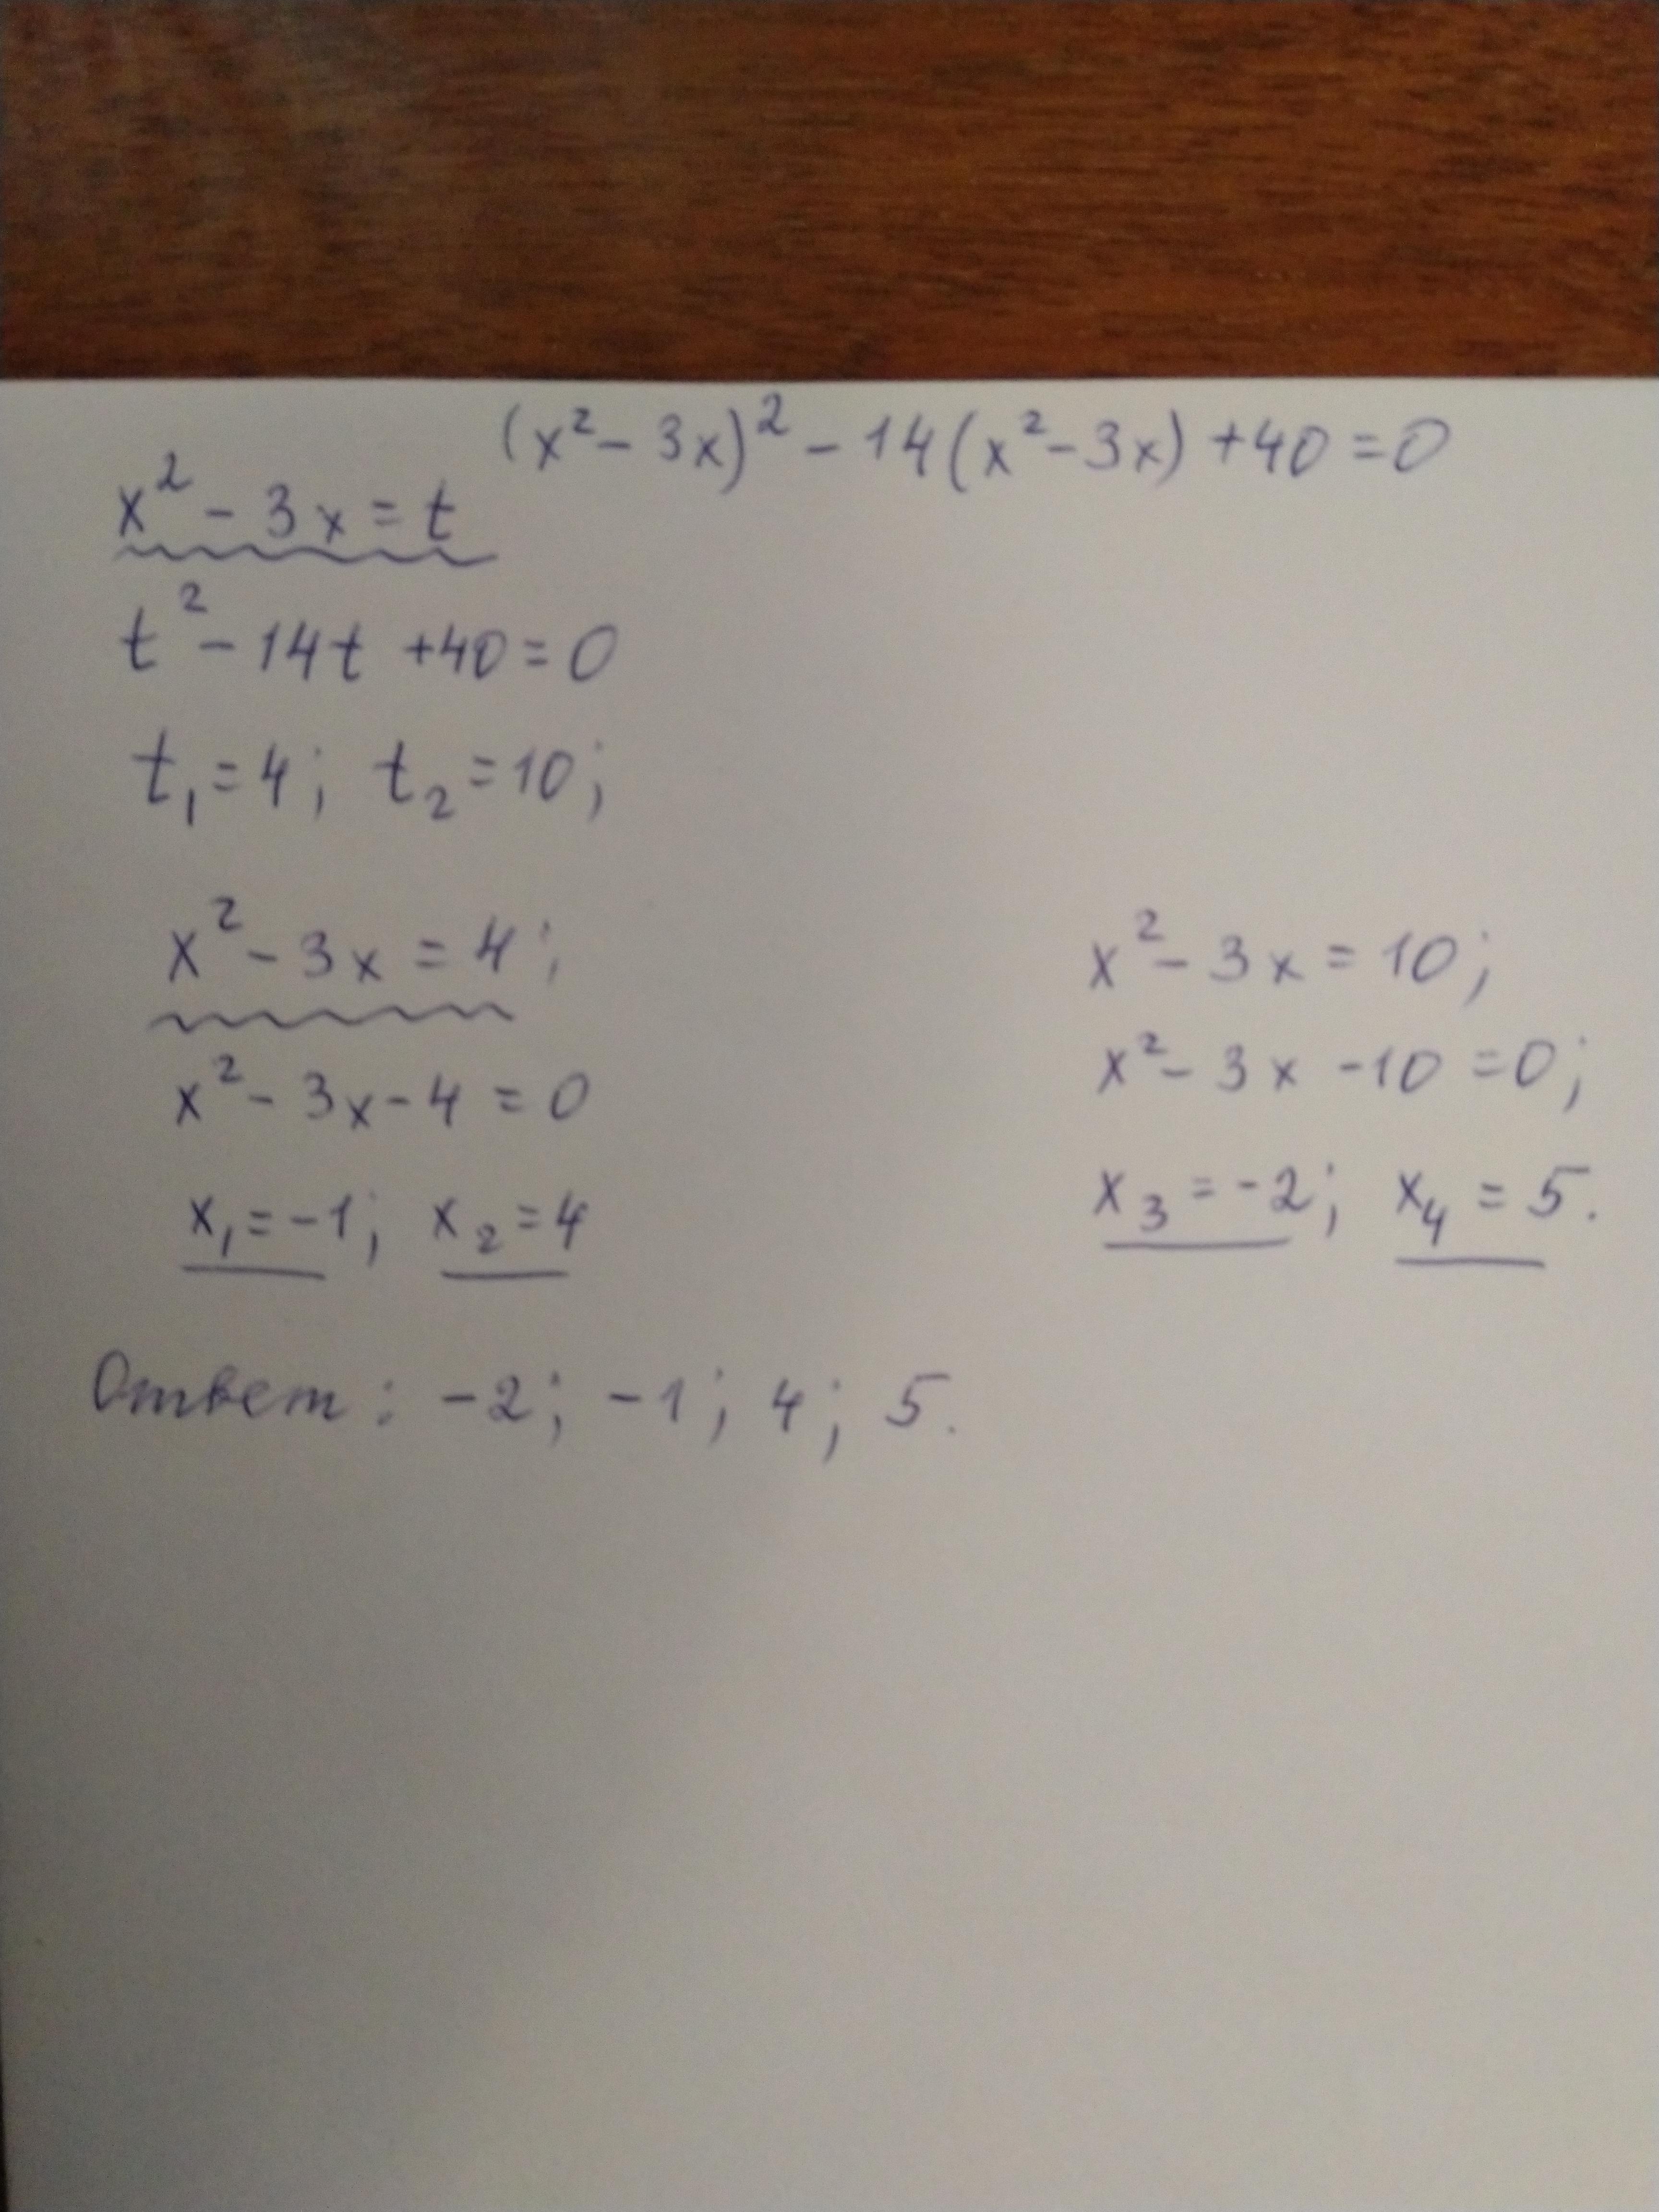 (x² - 3x)² - 14(x² - 3x) + 40 = 0
x² - 3x = t
t² - 14t + 40 = 0
t₁ = 4; t₂ = 10;
x² - 3x = 4;
x² - 3x - 4 = 0
x₁ = -1; x₂ = 4
x² - 3x = 10;
x² - 3x - 10 = 0;
x₃ = -2; x₄ = 5.
Ответ: -2; -1; 4; 5.